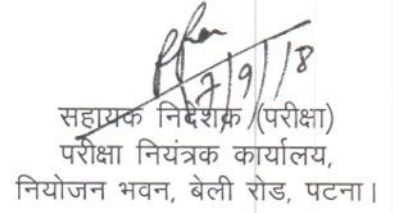 7/9/18
सहायक निदेशक (परीक्षा)
परीक्षा नियंत्रक कार्यालय,
नियोजन भवन, बेली रोड, पटना।